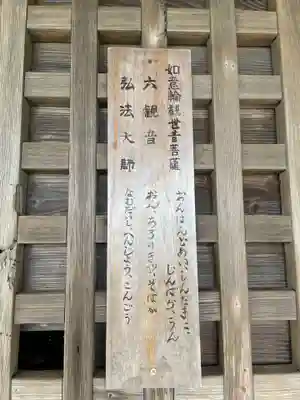 如意輪観世音菩薩
おんはんどめいしんだまに
じんばら、うん
六観音
おん、あろりきゃ、そばか
弘法大師
なむだいし、へんじょう、こんごう